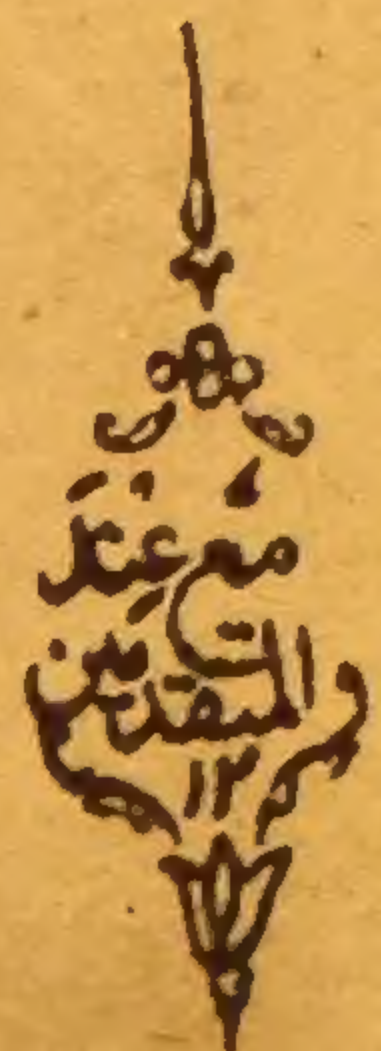 مع عِنْدَ
المتقدمين
١٢